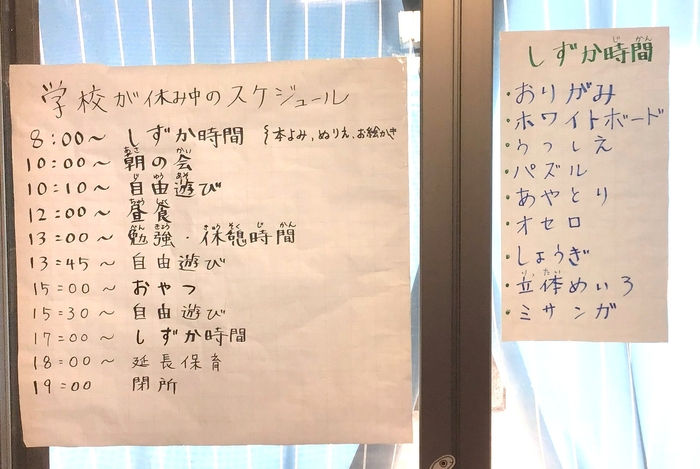 学校が休み中のスケジュール
8:00～ しずか時間 {本よみ,ぬりえ、お絵かき
10:00～ 朝の会
10:10～ 自由遊び
12:00～ 昼食
13:00～ 勉強・休憩時間
13:45～ 自由遊び
15:00～ おやつ
15:30～ 自由遊び
17:00～ しずか時間
18:00～ 延長保育
19:00 閉所
しずか時間
・おりがみ
・ホワイトボード
・うつしえ
・パズル
・あやとり
・オセロ
・しょうぎ
・立体めいろ
・ミサンガ